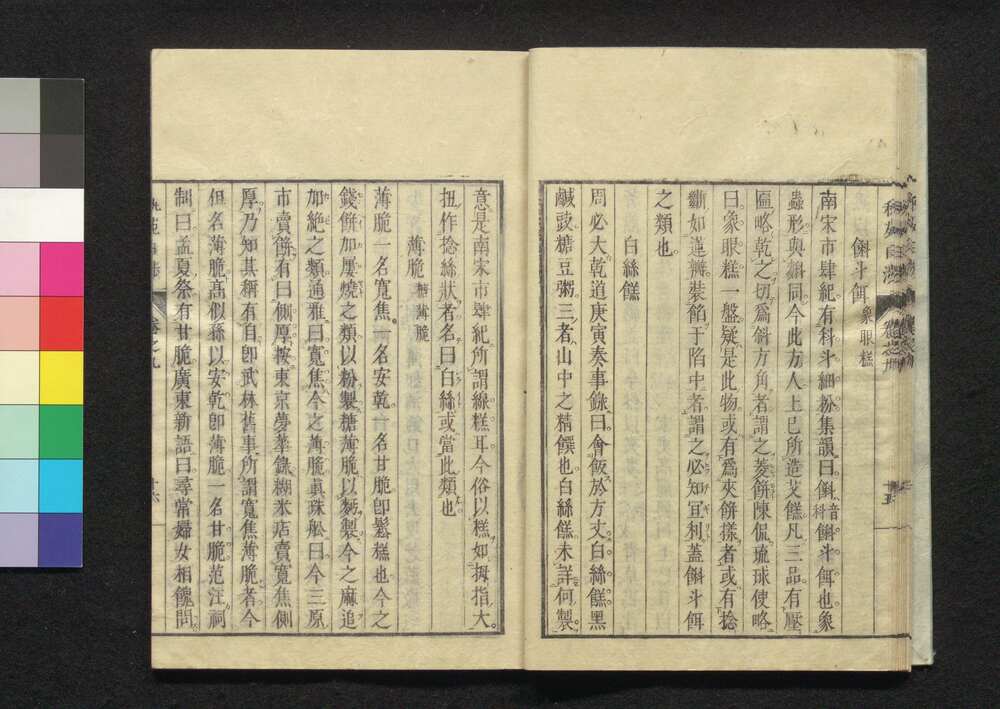 䤚斗餌 象眼糕
南宋市肆紀有科斗細粉集韻曰䤚音科䤚斗餌也象
蟲形與䤚同今此方人上巳所造艾餻凡三品有壓
匾略乾之切爲斜方角者謂之菱餅陳侃琉球使略
曰象眼糕一盤疑是此物或有爲夾餅樣者或有捻
斷如蓮瓣裝餡于陷中者謂之必知冝利蓋䤚斗餌
之類也
白絲餻
周必大乾道庚寅奏事錄曰會飯於方丈白絲餻黑
鹹豉糖豆粥三者山中之精饌也白絲餻未詳何製
意是南宋市肆紀所謂線糕耳今俗以糕如拇指大
扭作捻絲狀者名曰白絲或當此類也
薄脆 糖薄脆
薄脆一名寬焦一名安乾一名甘脆卽鬆糕也今之
錢餅加屢燒之類以粉製糖薄脆以麪製今之麻追
加絶之類通雅曰寬焦今之薄脆眞珠船曰今三原
市賣餅有曰側厚按東京夢華錄糊氷店賣寬焦側
厚乃知其稱有自卽武林舊事所謂寬焦薄脆者今
但名薄脆髙似孫以安乾卽薄脆一名甘脆范汪祠
制曰孟夏祭有甘脆廣東新語曰尋常婦女相餽問